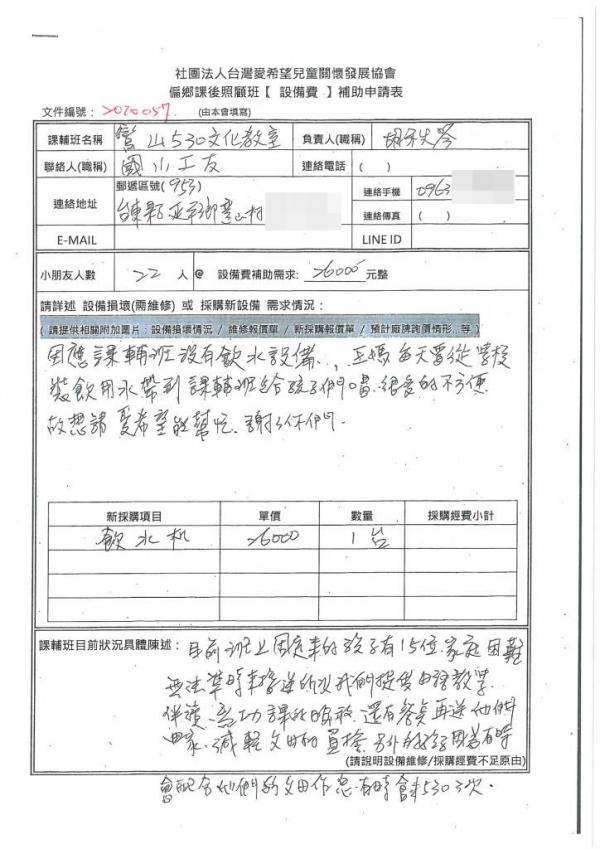 社團法人台灣愛希望兒童關懷發展協會
偏鄉課後照顧班【 設備費 】補助申請表
文件編號： 2020057 (由本會填寫)
課輔班名稱 鸞山530文化教室 負責人(職稱) 胡
聯絡人(職稱) 國小工友 連絡電話 ( )
連絡地址 郵遞區號(953) 連絡手機 0963
台東縣延平鄉鸞山村 連絡傳真 ( )
E-MAIL LINE ID
小朋友人數 22 人@ 設備費補助需求: 26000 元整
請詳述 設備損壞(需維修) 或 採購新設備 需求情況：
( 請提供相關附加圖片：設備損壞情況 / 維修報價單 / 新採購報價單 / 預計廠牌詢價情形...等 )
因應課輔班沒有飲水設備., 王媽每天要從學校
裝飲用水帶到課輔班給孩子們喝.很多的不方便
故想請愛希望能幫忙.謝謝你們.
新採購項目 單價 數量 採購經費小計
飲水机 26000 1台
課輔班目前狀況具體陳述： 目前班上 的孩子有15位.家庭困難
無法 時 送所以我們提供 教學.
伴讀. 功課的 .還有餐食再送他們
回家.減輕父母的負擔.另外的 因為有時
(請說明設備維修/採購經費不足原由)
會配合他們的父母作息.有時會來530 3次.